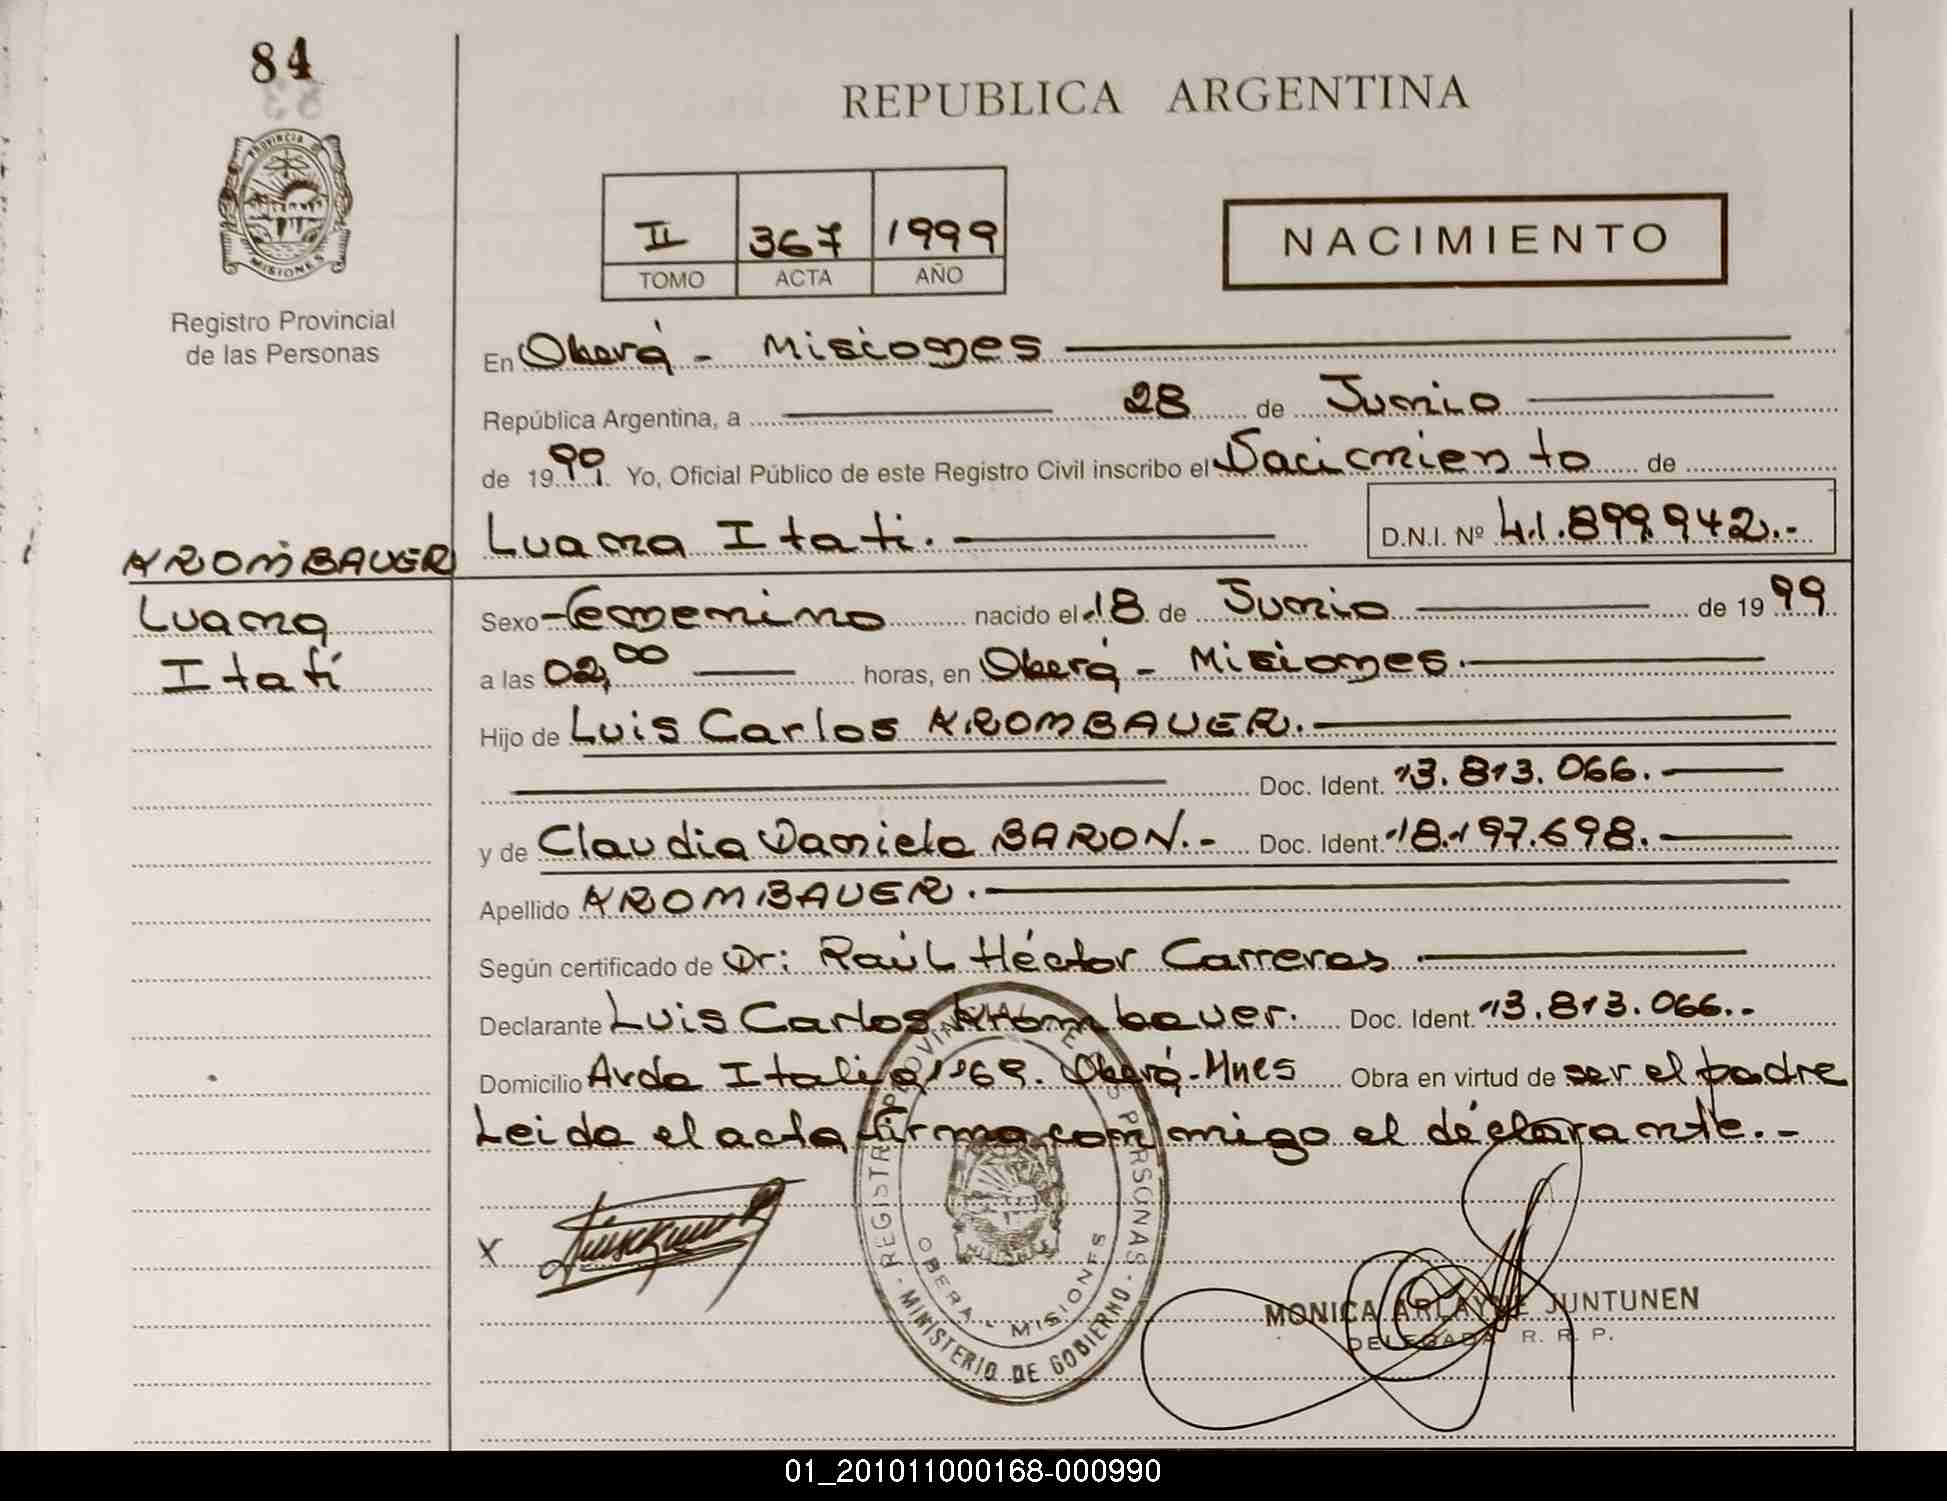 84
REPUBLICA ARGENTINA
PROVINCIA DE
MISIONES
Registro Provincial
de las Personas
II 367 1999
TOMO ACTA AÑO
NACIMIENTO
En Oberá - Misiones
República Argentina, a 28 de Junio
de 1999 Yo, Oficial Público de este Registro Civil inscribo el Nacimiento de
KROMBAUER
Luana Itati. D.N.I. Nº 41.899.942.-
Luana
Itatí
Sexo Femenino nacido el 18 de Junio de 1999
a las 02,00 horas, en Oberá - Misiones.
Hijo de Luis Carlos KROMBAUER.
Doc. Ident. 13.813.066.
y de Claudia Daniela BARON.- Doc. Ident. 18.197.698.
Apellido KROMBAUER.
Según certificado de Dr: Raúl Héctor Carreras
Declarante Luis Carlos Krombauer. Doc. Ident. 13.813.066.-
Domicilio Avda Italia 1169. Oberá-Mnes Obra en virtud de ser el padre
Leida el acta, firma conmigo el declarante.-
X
REGISTRO PROVINCIAL DE LAS PERSONAS
OBERA - MISIONES
MINISTERIO DE GOBIERNO
MONICA ARLAYNE JUNTUNEN
DELEGADA R. R. P.
01_201011000168-000990